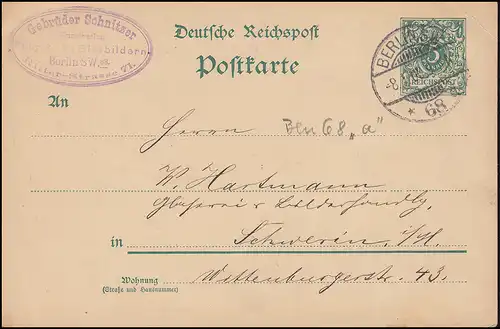 Gebrüder Schnitzer
Glasbildern
Berlin SW.
Ritter-Strasse 71.
Deutsche Reichspost
Postkarte
BERLIN S.W.
* 68
REICHSPOST
An
Herrn
Bln 68 „a"
W. Hartmann
Glaserei u Bilderhandlg.
in Schwerin i/M.
Wohnung
(Straße und Hausnummer)
Wittenburgerstr. 43.